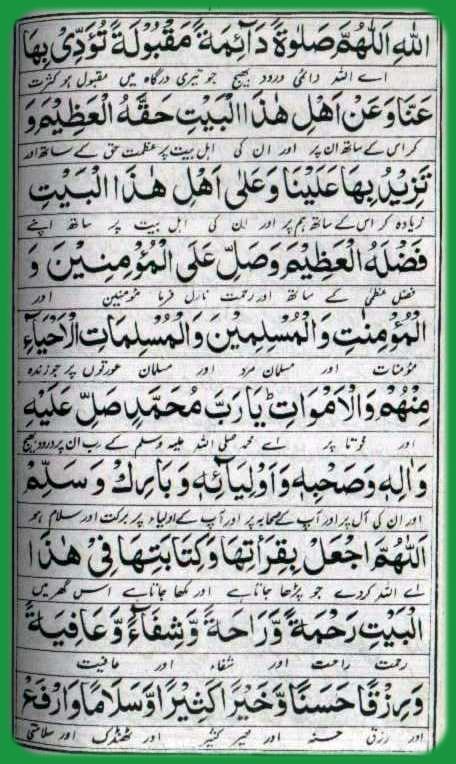 اللهِ اَللّٰهُمَّ صَلٰوةً دَآئِمَةً مَّقْبُولَةً تُؤَدِّىْ بِهَا
اے اللہ دائمی درود بھیج جو تیری درگاہ میں مقبول ہو کثرت
عَنَّا وَعَنْ اَهْلِ هٰذَا الْبَيْتِ حَقَّهُ الْعَظِيْمَ وَ
کر اس کے ساتھ ان پر اور ان کی اہل بیت پر عظمت حق کے ساتھ اور
تَزِيْدُ بِهَا عَلَيْنَا وَعَلٰى اَهْلِ هٰذَا الْبَيْتِ
زیادہ کر اس کے ساتھ ہم پر اور ان کی اہل بیت پر ساتھ اپنے
فَضْلَهُ الْعَظِيْمَ وَصَلِّ عَلَى الْمُؤْمِنِيْنَ وَ
فضل عظیم کے ساتھ اور رحمت نازل فرما مومنین اور
الْمُؤْمِنٰتِ وَالْمُسْلِمِيْنَ وَالْمُسْلِمَاتِ الْاَحْيَآءِ
مؤمنات اور مسلمان مرد اور مسلمان عورتوں پر جو زندہ
مِنْهُمْ وَالْاَمْوَاتِ يَارَبَّ مُحَمَّدٍ صَلِّ عَلَيْهِ
اور فوتا پر اے محمد صلی اللہ علیہ وسلم کے رب ان پر درود بھیج
وَاٰلِهٖ وَصَحْبِهٖ وَاَوْلِيَآئِهٖ وَبَارِكْ وَسَلِّمْ
اور ان کی آل پر اور آپ کے صحابہ پر اور آپ کے اولیاء پر برکت اور سلام ہو
اَللّٰهُمَّ اجْعَلْ بِقِرَأَتِهَا وَكِتَابَتِهَا فِىْ هٰذَا
اے اللہ کردے جو پڑھا جاتا ہے اور لکھا جاتا ہے اس گھر میں
الْبَيْتِ رَحْمَةً وَّرَاحَةً وَّشِفَآءً وَّعَافِيَةً
رحمت راحت اور شفاء اور عافیت
وَّرِزْقًا حَسَنًا وَّخَيْرًا كَثِيْرًا وَّسَلَامًا وَارْفَعْ
اور رزق حسنہ اور خیر کثیر اور ٹھنڈک اور سلامتی